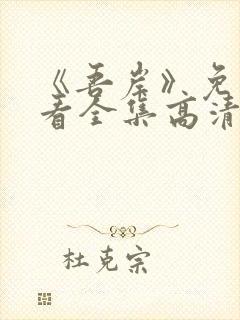 《吾岸》免
看全集高清
杜克宗